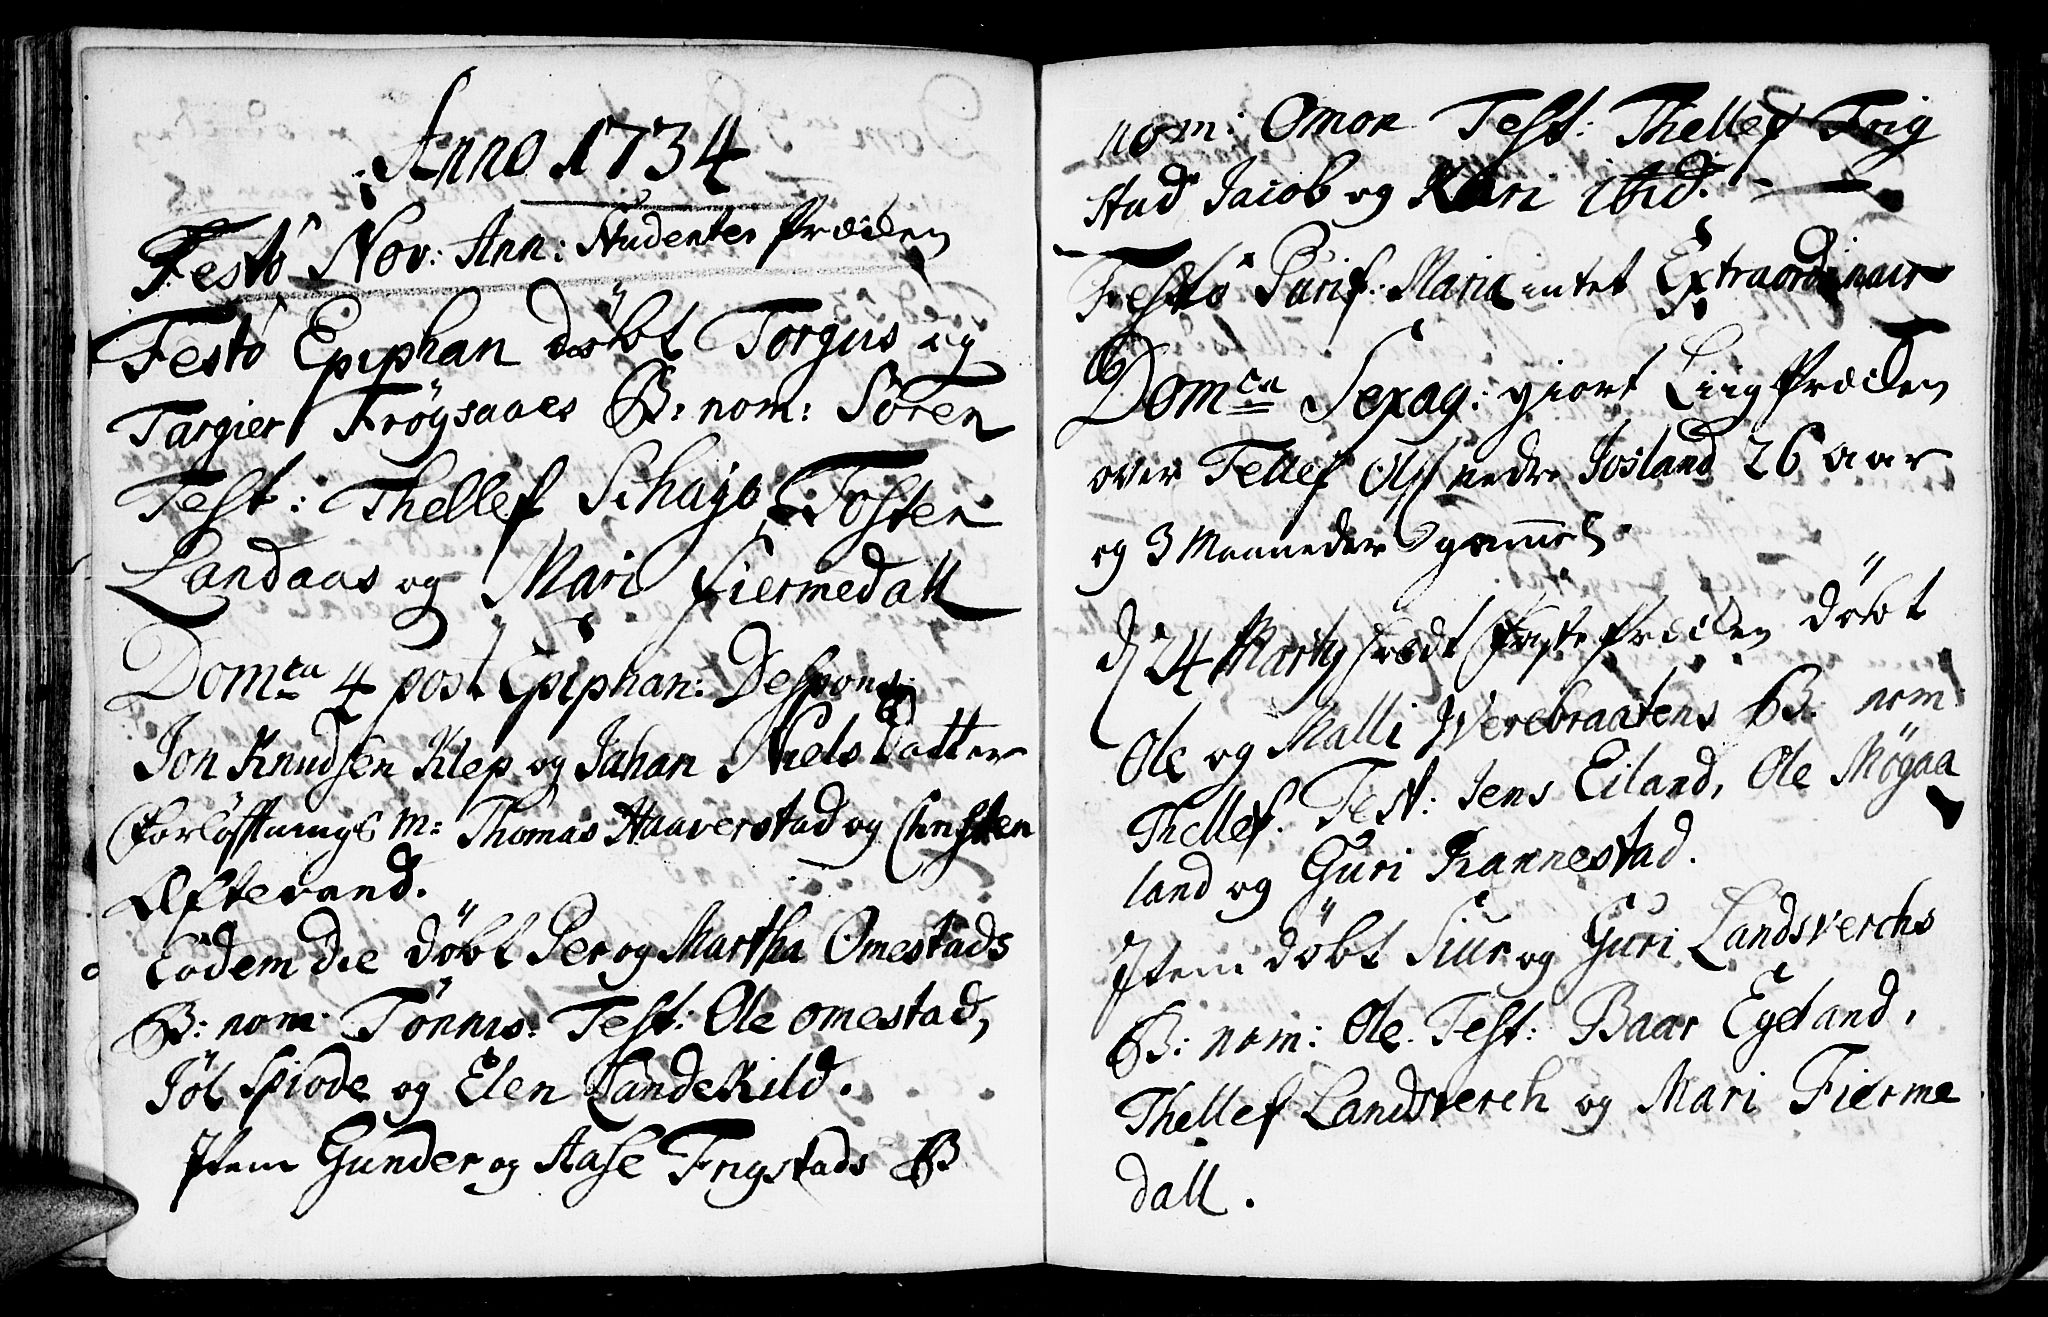 Anno 1734
Festo Nov: Ann: Studenter Prædiken
Festo Epiphan döbt Torgius og
Targier Fröysaaes B: nom: Sören
Test: Thellef Schaye Tosten
Landaas og Mari Fiermedall
Domca 4 post Epiphan: Despons:
Jon Knudsen Klep og Johan Niels Datter
Forlöffnings M: Thomas Haaverstad og Christen
Ufftevand.
Eodem die döbt Per og Martha Omestads
B: nom: Tönnis: Test: Ole Omestad,
Jöl Spiode og Elen Landekild.
Item Gunder og Aase Frigstads B
nom: Omon Test: Thellef Frig
stad Jacob og Kari ibid:
Festo Purif: Mariæ intet Extraordinair
Domca Sexag: giort Liig Prædiken
over Tellef Ols nedre Josland 26 aar
og 3 Maaneder gammel.
d 24 Martij holdt Prædiken döbt
Ole og Malli Werebraatens B. nom:
Thellef. Test: Jens Eiland, Ole Mögaa
land og Guri Rannestad.
Item döbt Siur og Guri Landsverchs
B: nom: Ole. Test: Baar Egeland,
Thellef Landsverch og Mari Fierme
dall.